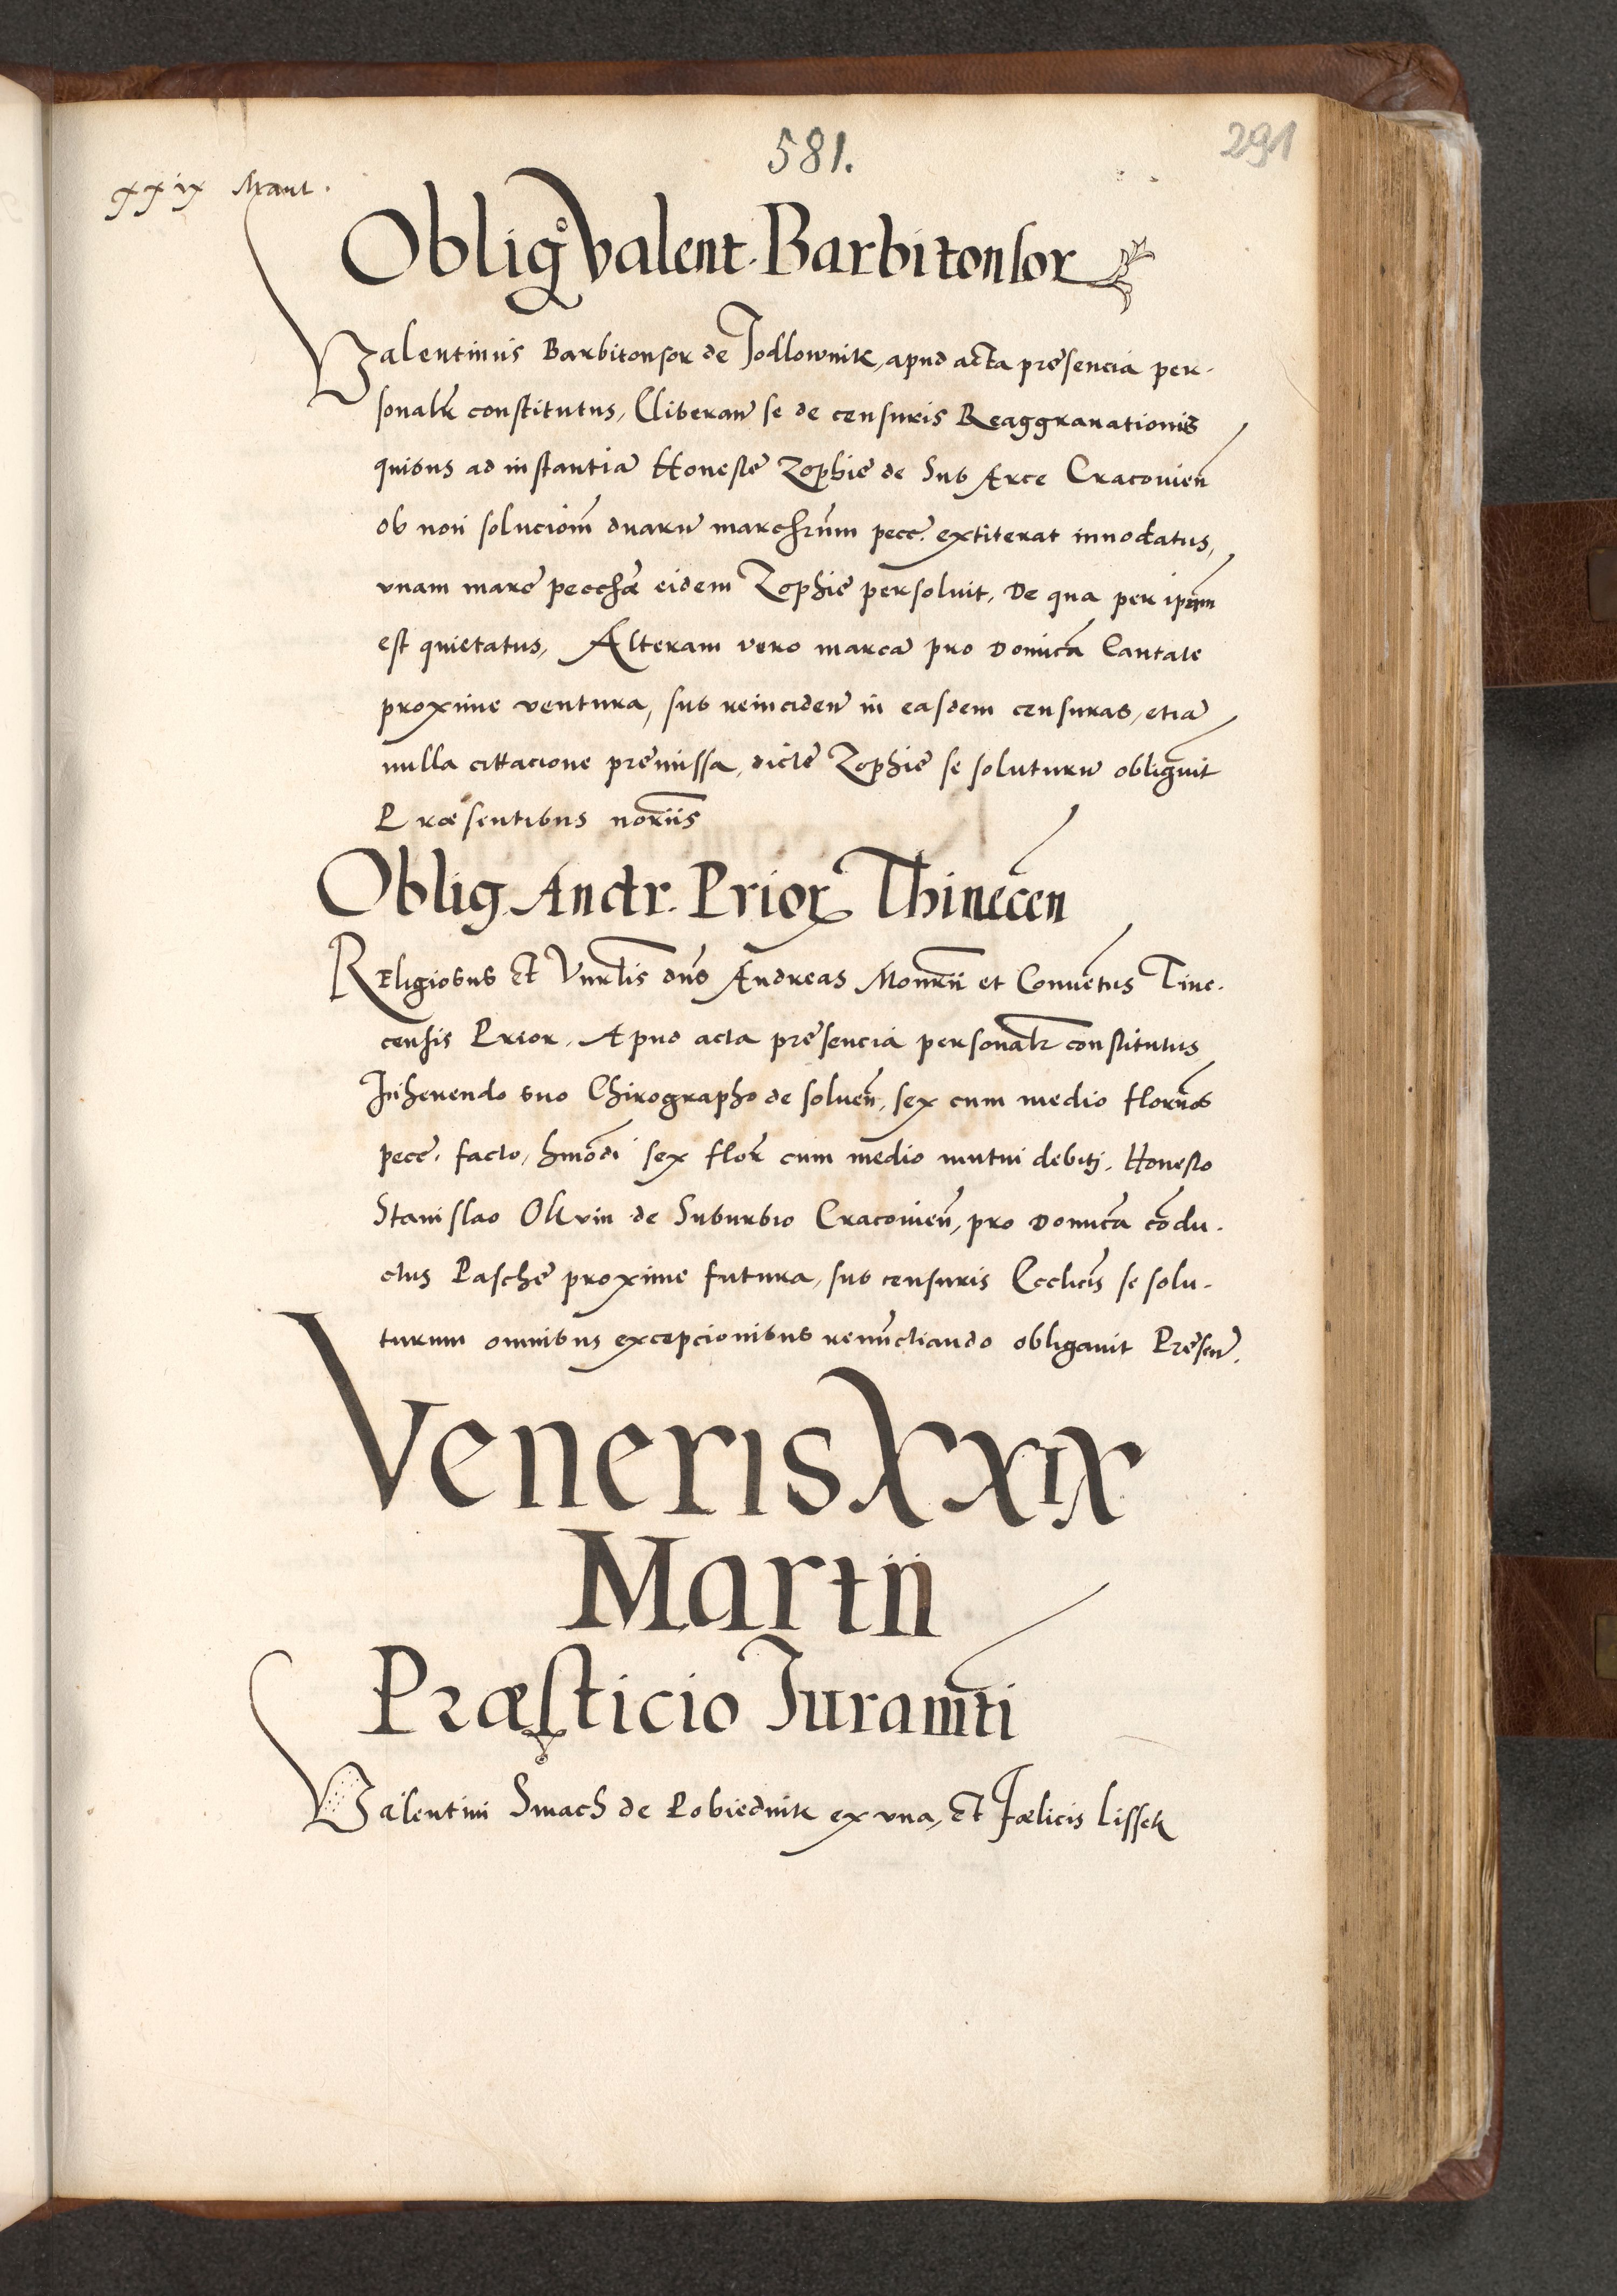 581.
291
xxix Mart.
Oblig Valent. Barbitonsor
Valentinus Barbitonsor de Jodlownik, apud acta presencia per-
sonalr constitutus, Cliberan̄ se de censuris Reaggrauationis
quibus ad instantiā Honestę Zophię de Sub Arce Cracouien̄
ob non solucionm̄ duarū marcharum pecc. extiterat innodatus,
vnam marc̄ pecchę eidem Zophię persoluit, De qua per ipsam
est quietatus, Alteram vero marcā pro Domica Cantate
proxime ventura, sub reinciden̄ in easdem censuras, etiā
nulla cittacione premissa, dictę Zophię se soluturū obligauit
Præsentibus noriis
Oblig. Andr. Prior Thinecen
Religiosus Et Vnrlis dns Andreas Monrii et Conuentus Tine-
censis Prior. Apud acta pręsencia personalr constitutus
Inherendo suo Chirographo de soluen̄, sex cum medio florenos
pecc. facto, hmodi sex flor cum medio mutui debiti. Honesto
Stanislao Olkvin de Suburbio Cracouien̄, pro Domica condu-
ctus Paschę proxime futura, sub censuris Ecclicis se solu-
turum omnibus excepcionibus renunctiando obligauit Pręsen̄.
Veneris XXIX
Martii
Præsticio Juramti
Valentini Smach de Pobiednik ex vna, Et Fœlicis Lissek